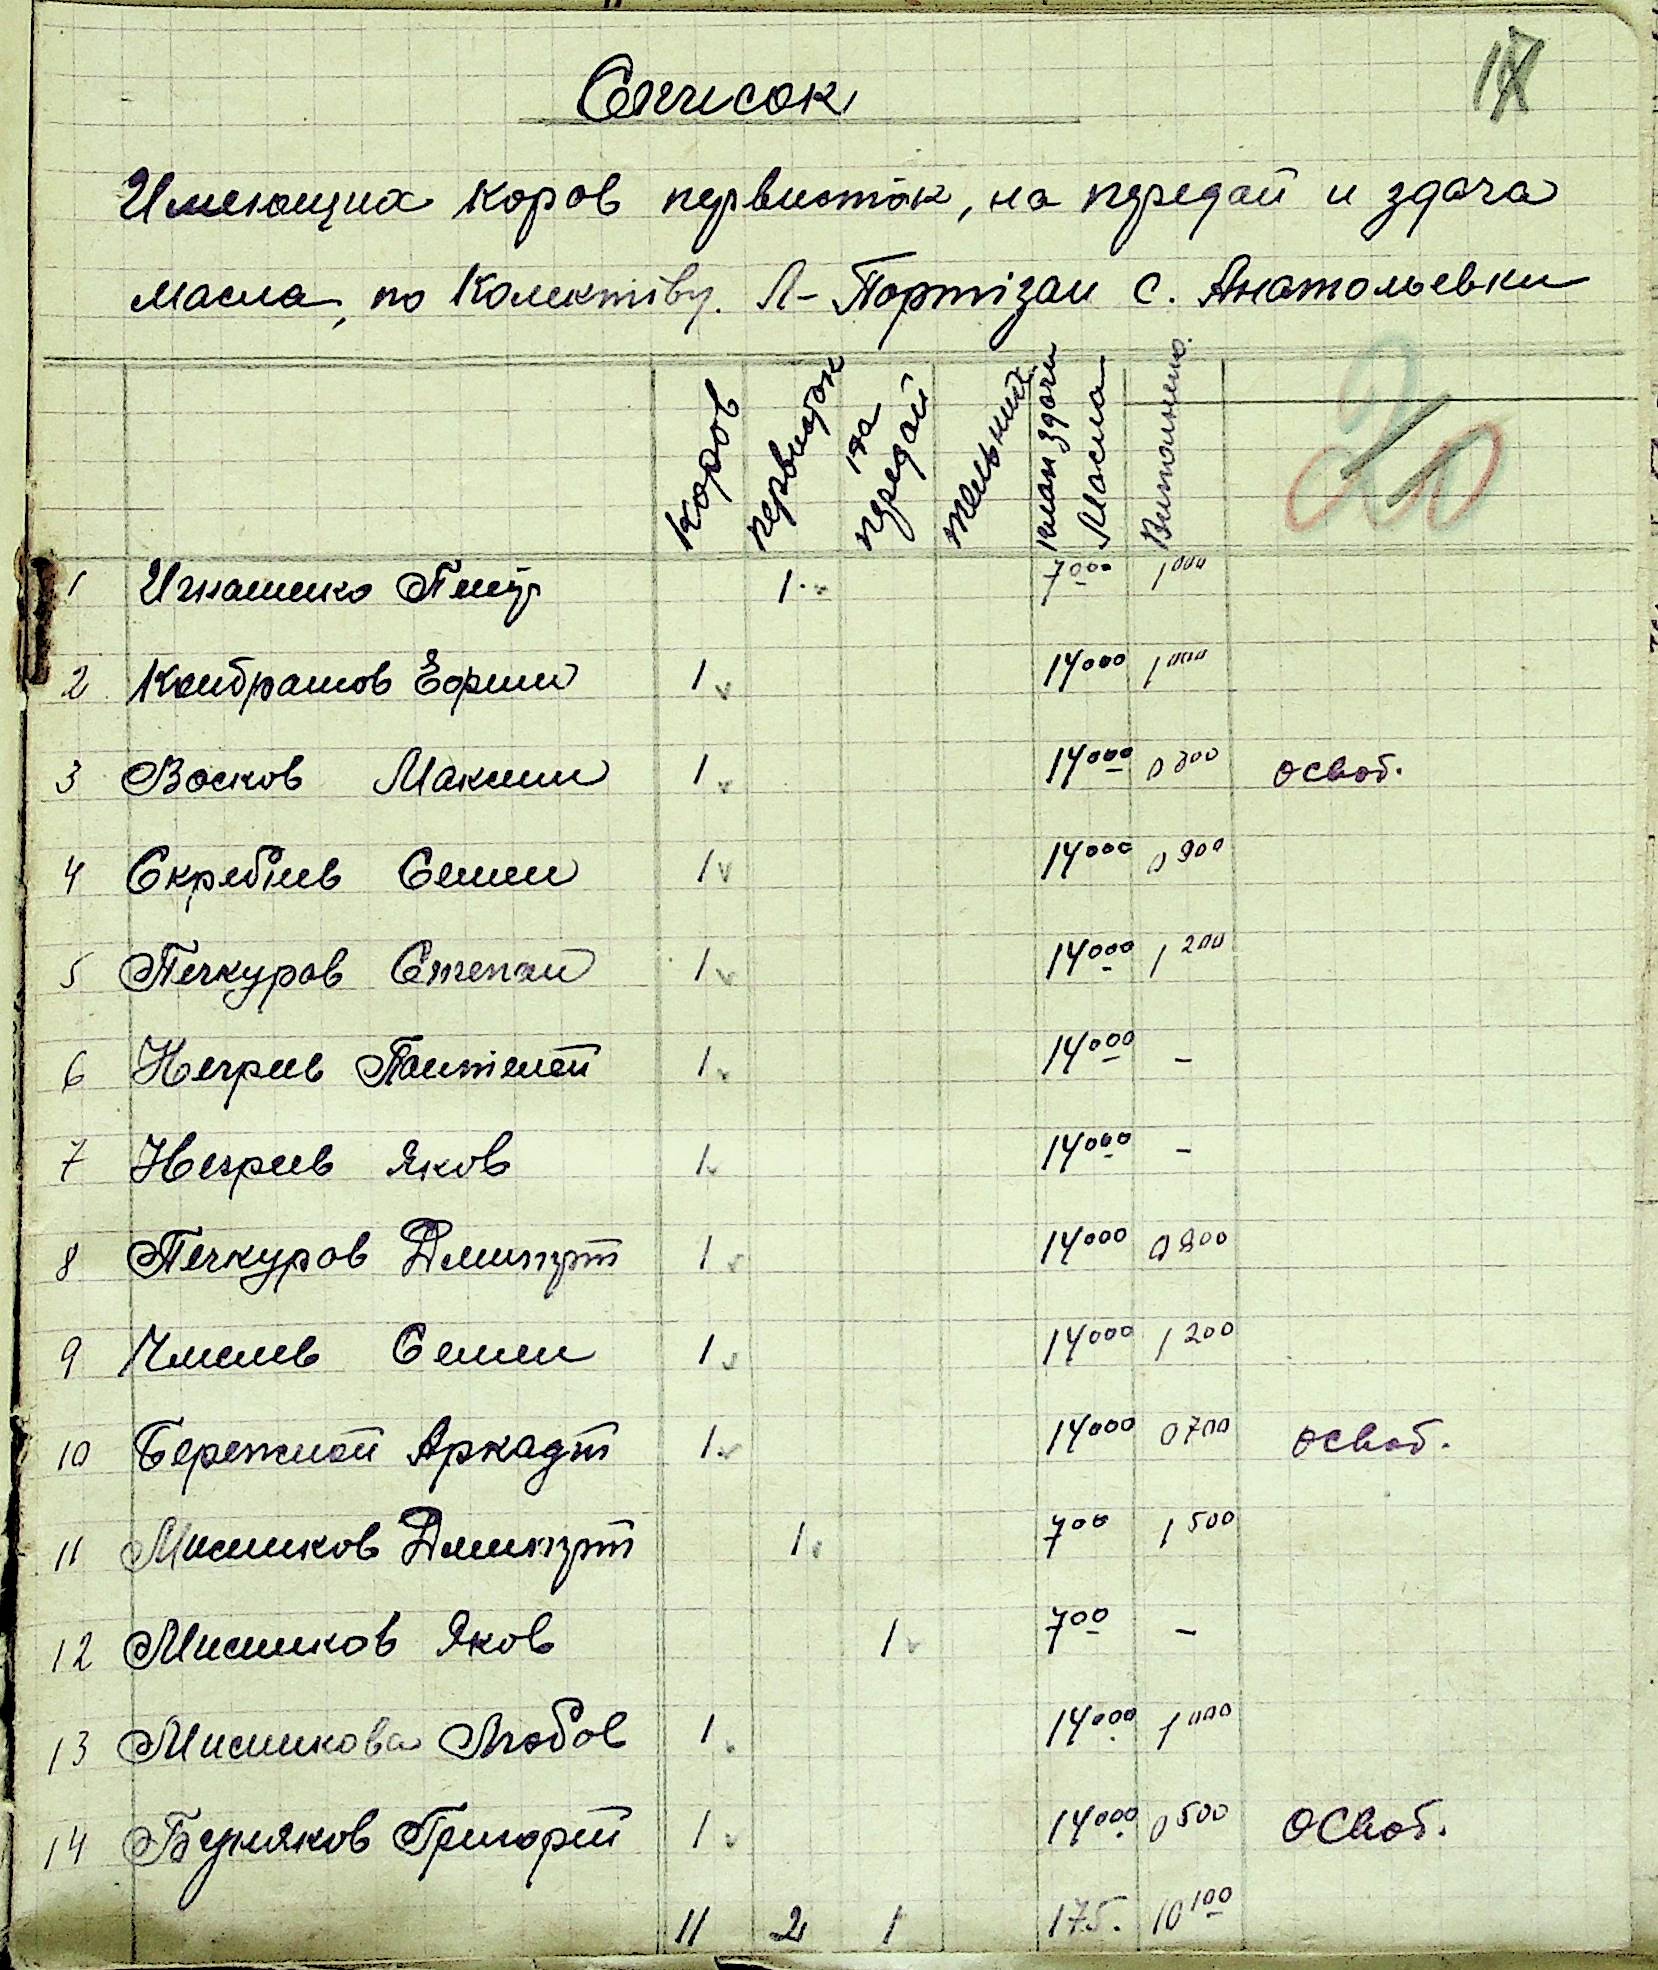 Список
Имеющих коров первисток, на передай и здача
масла, по Колективу. Л-Портізан с. Анатольевки
20
Коров первисток на передай тельних план здачи Масла Виполнено.
1 Игнатенко Петр 1 7000 1000
2 Кондрашов Ефим 1 14000 1000
3 Восков Максим 1 14000 0 800 освоб.
4 Семен 1 14000 0 900
5 Печкуров Степан 1 14000 1 200
6 Негриев Пантелей 1 14000 -
7 Негриев Яков 1 14000 -
8 Печкуров Дмитрий 1 14000 0 900
9 Семен 1 14000 1 200
10 Бережной Аркадий 1 14000 0 700 освоб.
11 Мисников Дмитрий 1 700 1 500
12 Мисников Яков 1 700 -
13 Мисникова Любов 1 14000 1 000
14 Буняков Григорий 1 14000 0 500 освоб.
11 2 1 175. 10 100